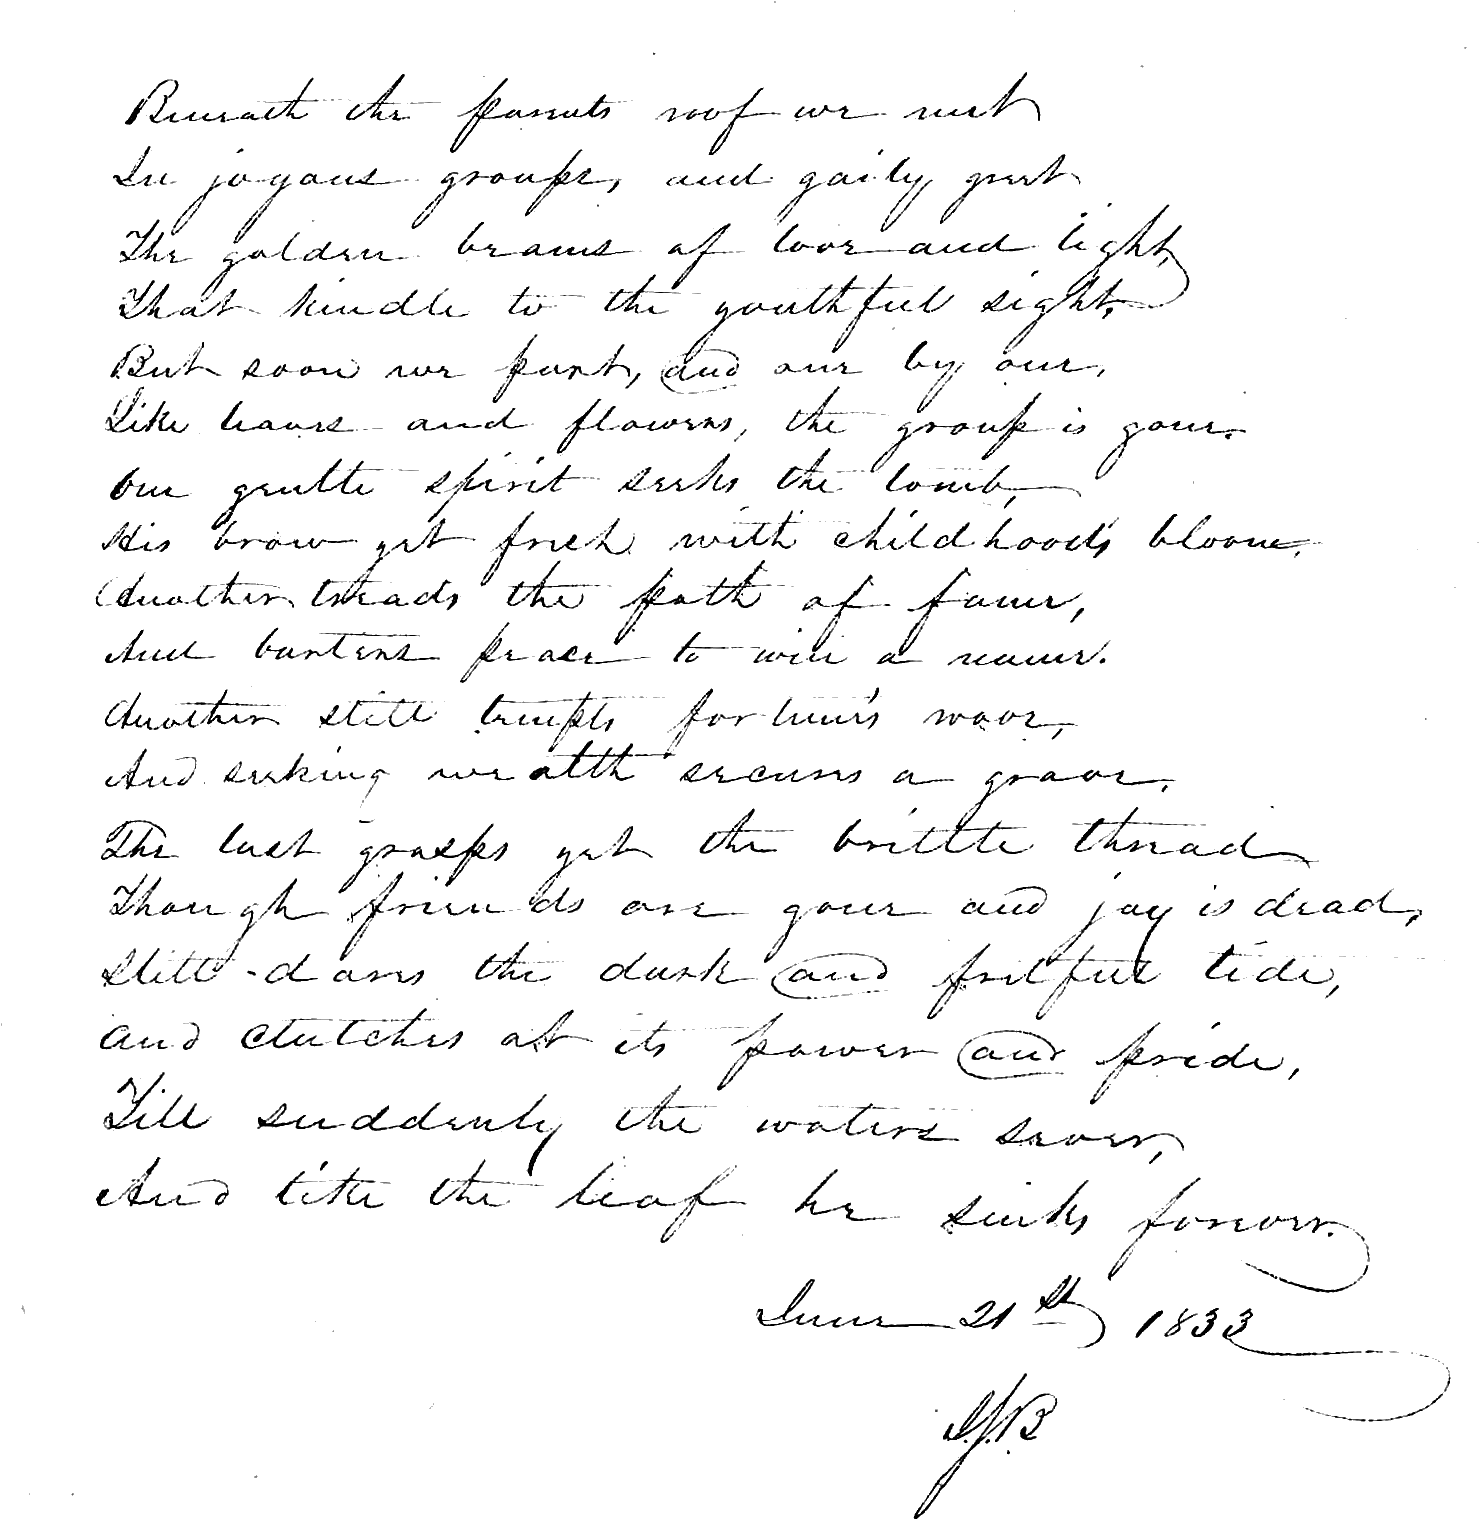 Beneath the parents roof we meet
In joyous groups, and gaily greet
The golden beams of love and light,
That kindle to the youthful sight.
But soon we part, and one by one,
Like leaves and flowers, the group is gone.
One gentle spirit seeks the tomb,
His brow yet fresh with childhood's bloom.
Another treads the path of fame,
And barters peace to win a name.
Another still tempts fortune's wave,
And seeking wealth secures a grave.
The last grasps yet the brittle thread
Though friends are gone and joy is dead,
Still dares the dark and fretful tide,
and clutches at its power and pride,
Till suddenly the waters sever,
And like the leaf he sinks forever.
June 21st 1833
I.J.B